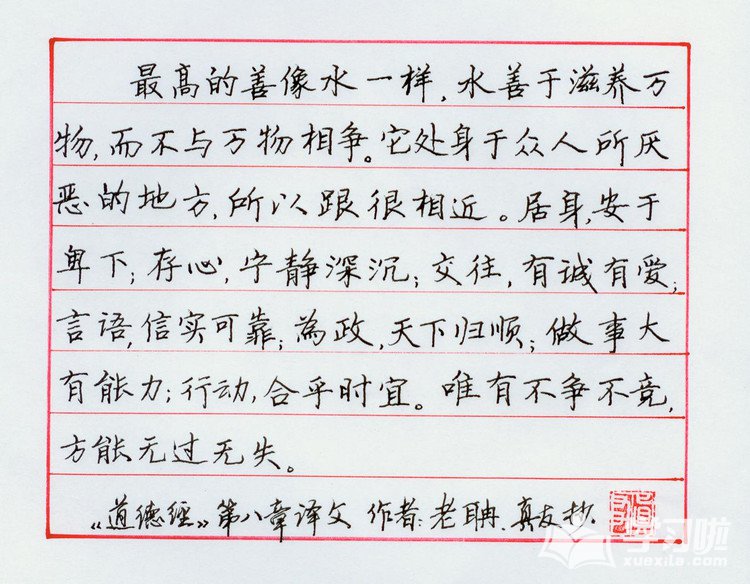 最高的善像水一样,水善于滋养万
物,而不与万物相争。它处身于众人所厌
恶的地方,所以跟很相近。居身,安于
卑下;存心,宁静深沉;交往,有诚有爱;
言语,信实可靠;為政,天下归顺;做事大
有能力;行动,合乎时宜。唯有不争不竞,
方能无过无失。
《道德经》第八章译文 作者:老聃.真友抄.
学习啦
xuexila.com